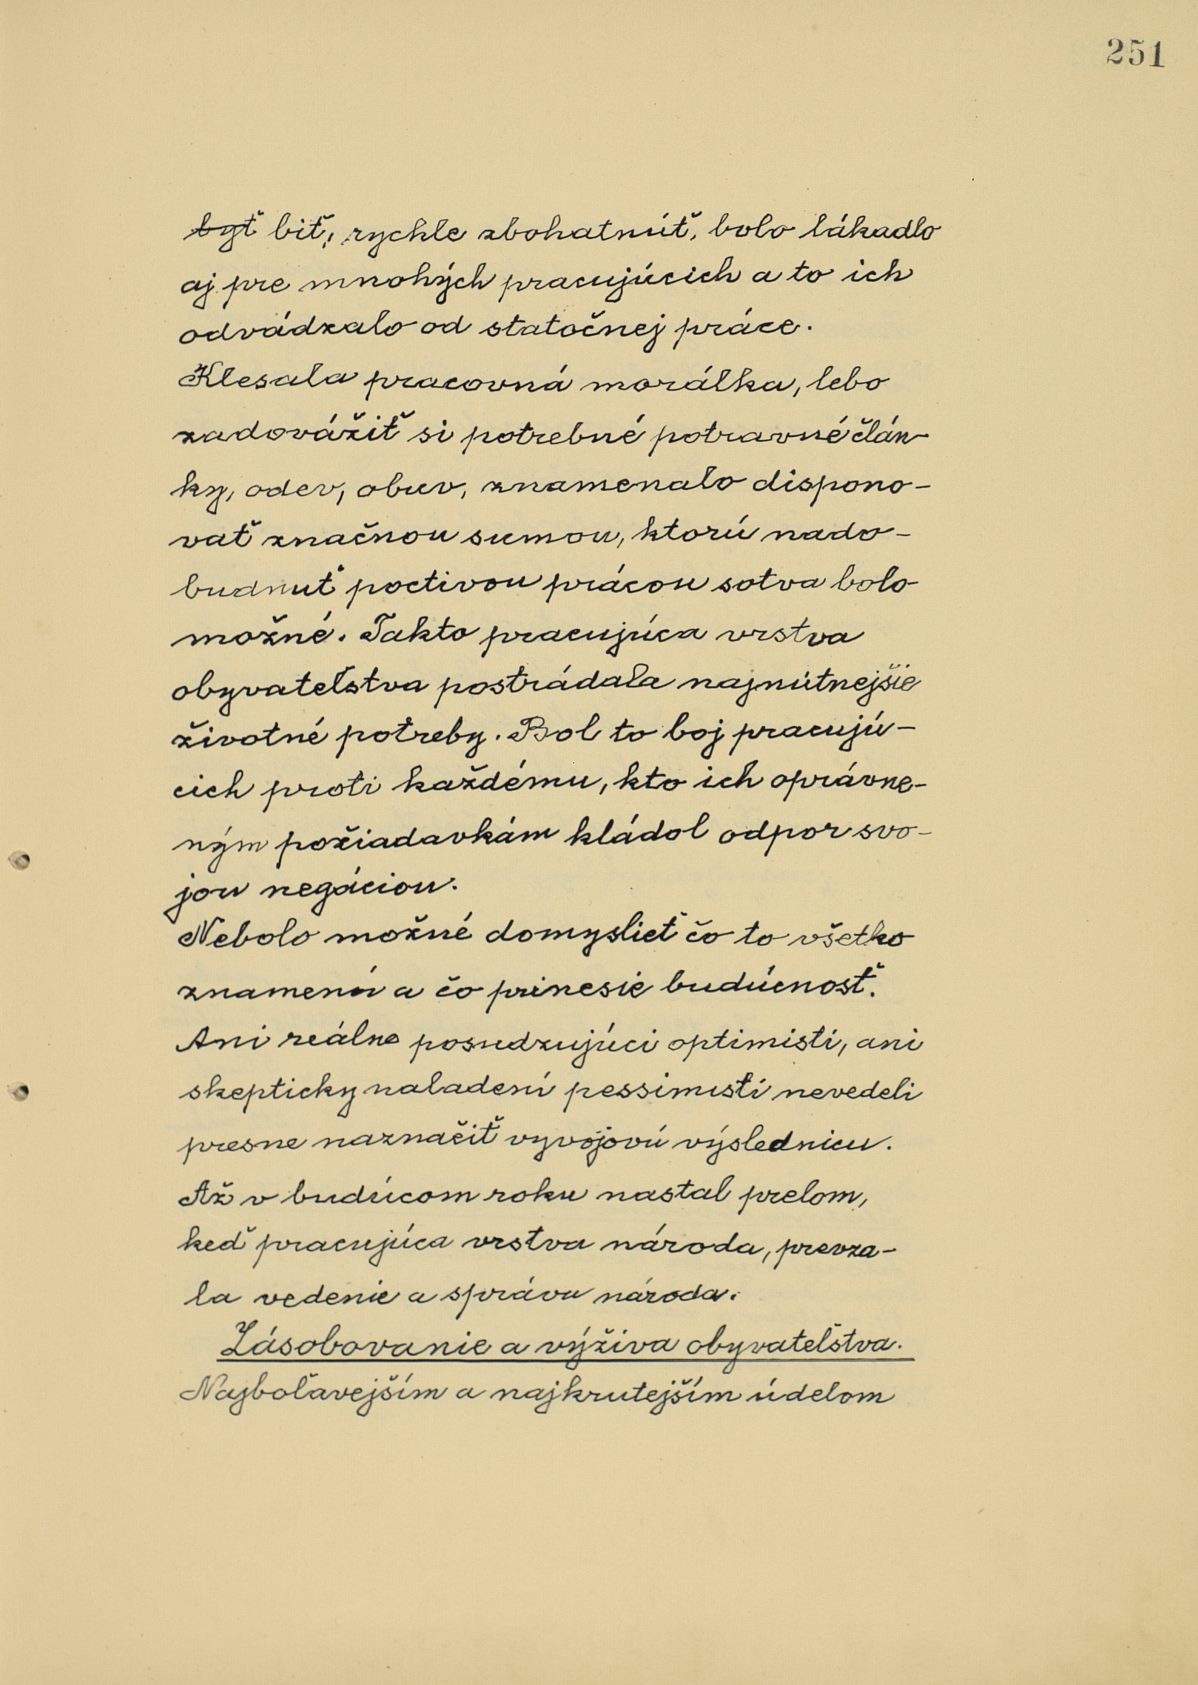 251
byť biť, rychle zbohatnúť, bolo lákadlo
aj pre mnohých pracujúcich a to ich
odvádzalo od statočnej práce.
Klesala pracovná morálka, lebo
zadovážiť si potrebné potravné člán-
ky, odev, obuv, znamenalo dispono-
vať značnou sumou, ktorú nado-
budnuť poctivou prácou sotva bolo
možné. Takto pracujúca vrstva
obyvateľstva postrádala najnútnejšie
životné potreby. Bol to boj pracujú-
cich proti každému, kto ich oprávne-
ným požiadavkám kládol odpor svo-
jou negáciou.
Nebolo možné domyslieť čo to všetko
znamená a čo prinesie budúcnosť.
Ani reálne posudzujúci optimisti, ani
skepticky naladení pessimisti nevedeli
presne naznačiť vyvojovú výslednicu.
Až v budúcom roku nastal prelom,
keď pracujúca vrstva národa, prevza-
la vedenie a správu národa.
Zásobovanie a výživa obyvateľstva.
Najboľavejším a najkrutejším údelom